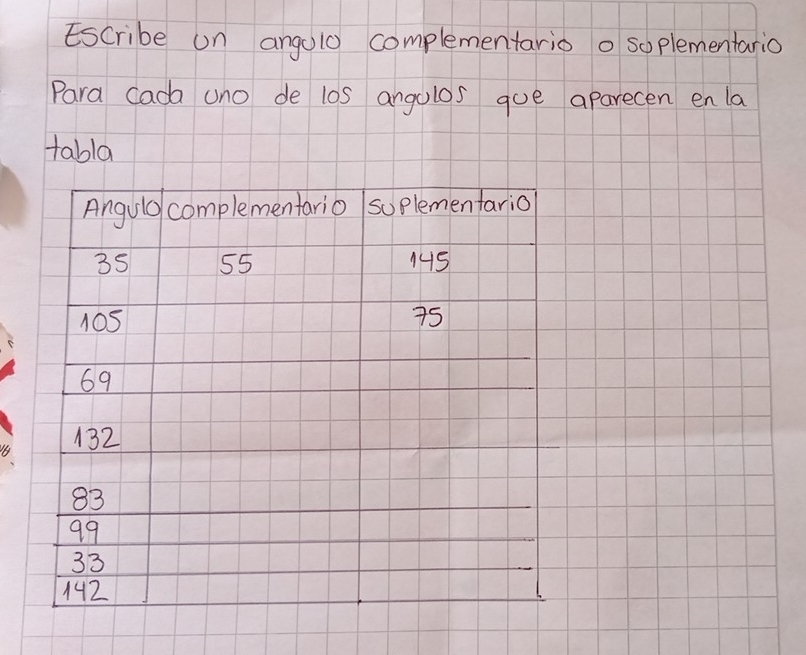 Escribe un angulo complementario o suplementario
Para cada uno de los angulos que aparecen en la
tabla
Angulo complementario suplementario
35 55 145
105 75
69
132
83
99
33
142